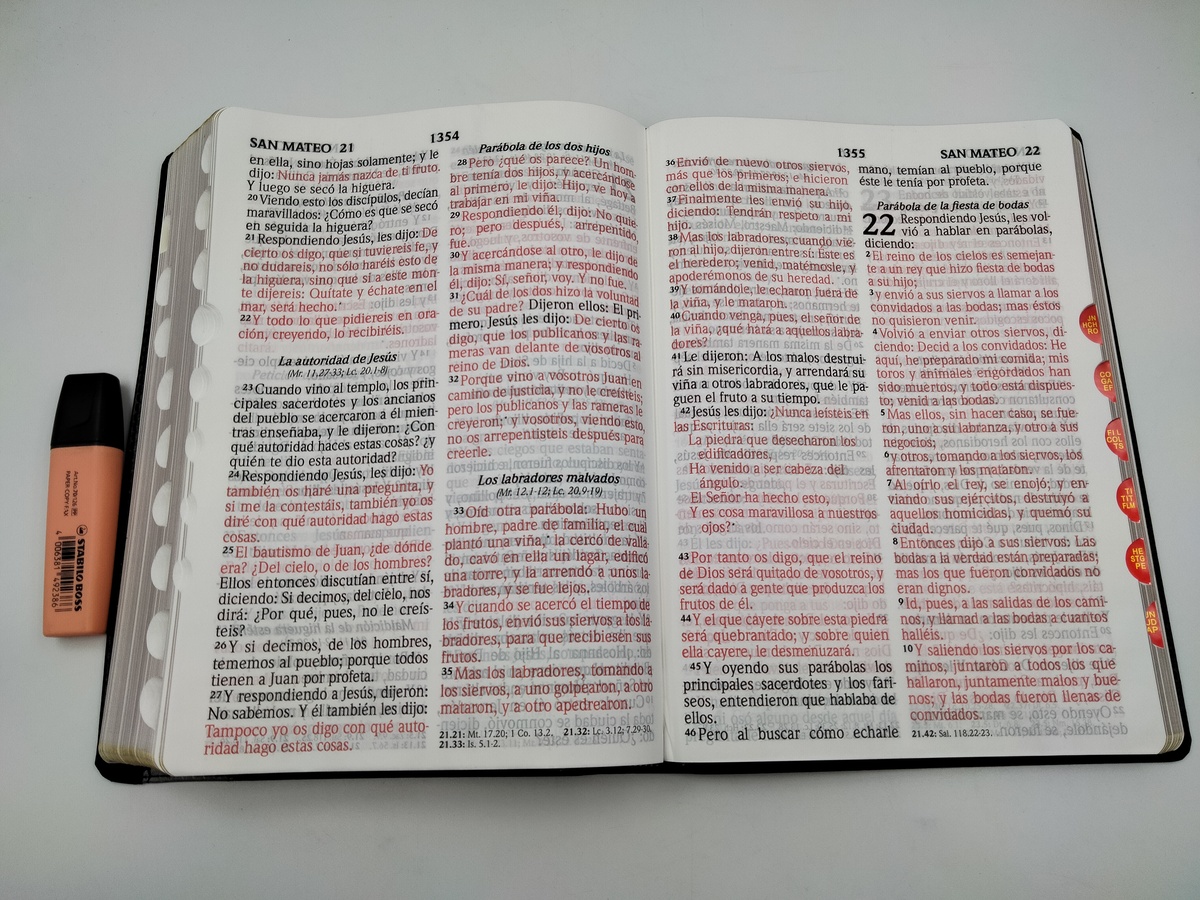 SAN MATEO 21
1354
en ella, sino hojas solamente; y le
dijo: Nunca jamás nazca de ti fruto.
Y luego se secó la higuera.
20 Viendo esto los discípulos, decían
maravillados: ¿Cómo es que se secó
en seguida la higuera?
21 Respondiendo Jesús, les dijo: De
cierto os digo, que si tuviereis fe, y
no dudareis, no sólo haréis esto de
la higuera, sino que si a este mon-
te dijereis: Quítate y échate en el
mar, será hecho.*
22 Y todo lo que pidiereis en ora-
ción, creyendo, lo recibiréis.
La autoridad de Jesús
(Mr. 11.27-33; Lc. 20.1-8)
23 Cuando vino al templo, los prin-
cipales sacerdotes y los ancianos
del pueblo se acercaron a él mien-
tras enseñaba, y le dijeron: ¿Con
qué autoridad haces estas cosas? ¿y
quién te dio esta autoridad?
24 Respondiendo Jesús, les dijo: Yo
también os haré una pregunta, y
si me la contestáis, también yo os
diré con qué autoridad hago estas
cosas.
25 El bautismo de Juan, ¿de dónde
era? ¿Del cielo, o de los hombres?
Ellos entonces discutían entre sí,
diciendo: Si decimos, del cielo, nos
dirá: ¿Por qué, pues, no le creís-
teis?
26 Y si decimos, de los hombres,
tememos al pueblo; porque todos
tienen a Juan por profeta.
27 Y respondiendo a Jesús, dijeron:
No sabemos. Y él también les dijo:
Tampoco yo os digo con qué auto-
ridad hago estas cosas.
Parábola de los dos hijos
28 Pero ¿qué os parece? Un hom-
bre tenía dos hijos, y acercándose
al primero, le dijo: Hijo, ve hoy a
trabajar en mi viña.
29 Respondiendo él, dijo: No quie-
ro; pero después, arrepentido,
fue.
30 Y acercándose al otro, le dijo de
la misma manera; y respondiendo
él, dijo: Sí, señor, voy. Y no fue.
31 ¿Cuál de los dos hizo la voluntad
de su padre? Dijeron ellos: El pri-
mero, Jesús les dijo: De cierto os
digo, que los publicanos y las ra-
meras van delante de vosotros al
reino de Dios.
32 Porque vino a vosotros Juan en
camino de justicia, y no le creísteis;
pero los publicanos y las rameras le
creyeron;* y vosotros, viendo esto,
no os arrepentisteis después para
creerle.
Los labradores malvados
(Mr. 12.1-12; Lc. 20.9-19)
33 Oíd otra parábola: Hubo un
hombre, padre de familia, el cual
plantó una viña,* la cercó de valla-
do, cavó en ella un lagar, edificó
una torre, y la arrendó a unos la-
bradores, y se fue lejos.
34 Y cuando se acercó el tiempo de
los frutos, envió sus siervos a los la-
bradores, para que recibiesen sus
frutos.
35 Mas los labradores, tomando a
los siervos, a uno golpearon, a otro
mataron, y a otro apedrearon.
21.21: Mt. 17.20; 1 Co. 13.2. 21.32: Lc. 3.12; 7.29-30.
21.33: Is. 5.1-2.
1355
SAN MATEO 22
36 Envió de nuevo otros siervos,
más que los primeros; e hicieron
con ellos de la misma manera.
37 Finalmente les envió su hijo,
diciendo: Tendrán respeto a mi
hijo.
38 Mas los labradores, cuando vie-
ron al hijo, dijeron entre sí: Este es
el heredero; venid, matémosle, y
apoderémonos de su heredad.
39 Y tomándole, le echaron fuera de
la viña, y le mataron.
40 Cuando venga, pues, el señor de
la viña, ¿qué hará a aquellos labra-
dores?
41 Le dijeron: A los malos destrui-
rá sin misericordia, y arrendará su
viña a otros labradores, que le pa-
guen el fruto a su tiempo.
42 Jesús les dijo: ¿Nunca leísteis en
las Escrituras:
La piedra que desecharon los
edificadores,
Ha venido a ser cabeza del
ángulo.
El Señor ha hecho esto,
Y es cosa maravillosa a nuestros
ojos?*
43 Por tanto os digo, que el reino
de Dios será quitado de vosotros, y
será dado a gente que produzca los
frutos de él.
44 Y el que cayere sobre esta piedra
será quebrantado; y sobre quien
ella cayere, le desmenuzará.
45 Y oyendo sus parábolas los
principales sacerdotes y los fari-
seos, entendieron que hablaba de
ellos.
46 Pero al buscar cómo echarle
mano, temían al pueblo, porque
éste le tenía por profeta.
Parábola de la fiesta de bodas
22 Respondiendo Jesús, les vol-
vió a hablar en parábolas,
diciendo:
2 El reino de los cielos es semejan-
te a un rey que hizo fiesta de bodas
a su hijo;
3 y envió a sus siervos a llamar a los
convidados a las bodas; mas éstos
no quisieron venir.
4 Volvió a enviar otros siervos, di-
ciendo: Decid a los convidados: He
aquí, he preparado mi comida; mis
toros y animales engordados han
sido muertos, y todo está dispues-
to; venid a las bodas.
5 Mas ellos, sin hacer caso, se fue-
ron, uno a su labranza, y otro a sus
negocios;
6 y otros, tomando a los siervos, los
afrentaron y los mataron.
7 Al oírlo, el rey, se enojó; y en-
viando sus ejércitos, destruyó a
aquellos homicidas, y quemó su
ciudad.
8 Entonces dijo a sus siervos: Las
bodas a la verdad están preparadas;
mas los que fueron convidados no
eran dignos.
9 Id, pues, a las salidas de los cami-
nos, y llamad a las bodas a cuantos
halléis.
10 Y saliendo los siervos por los ca-
minos, juntaron a todos los que
hallaron, juntamente malos y bue-
nos; y las bodas fueron llenas de
convidados.
21.42: Sal. 118.22-23.
STABILO BOSS
4 006381 492386